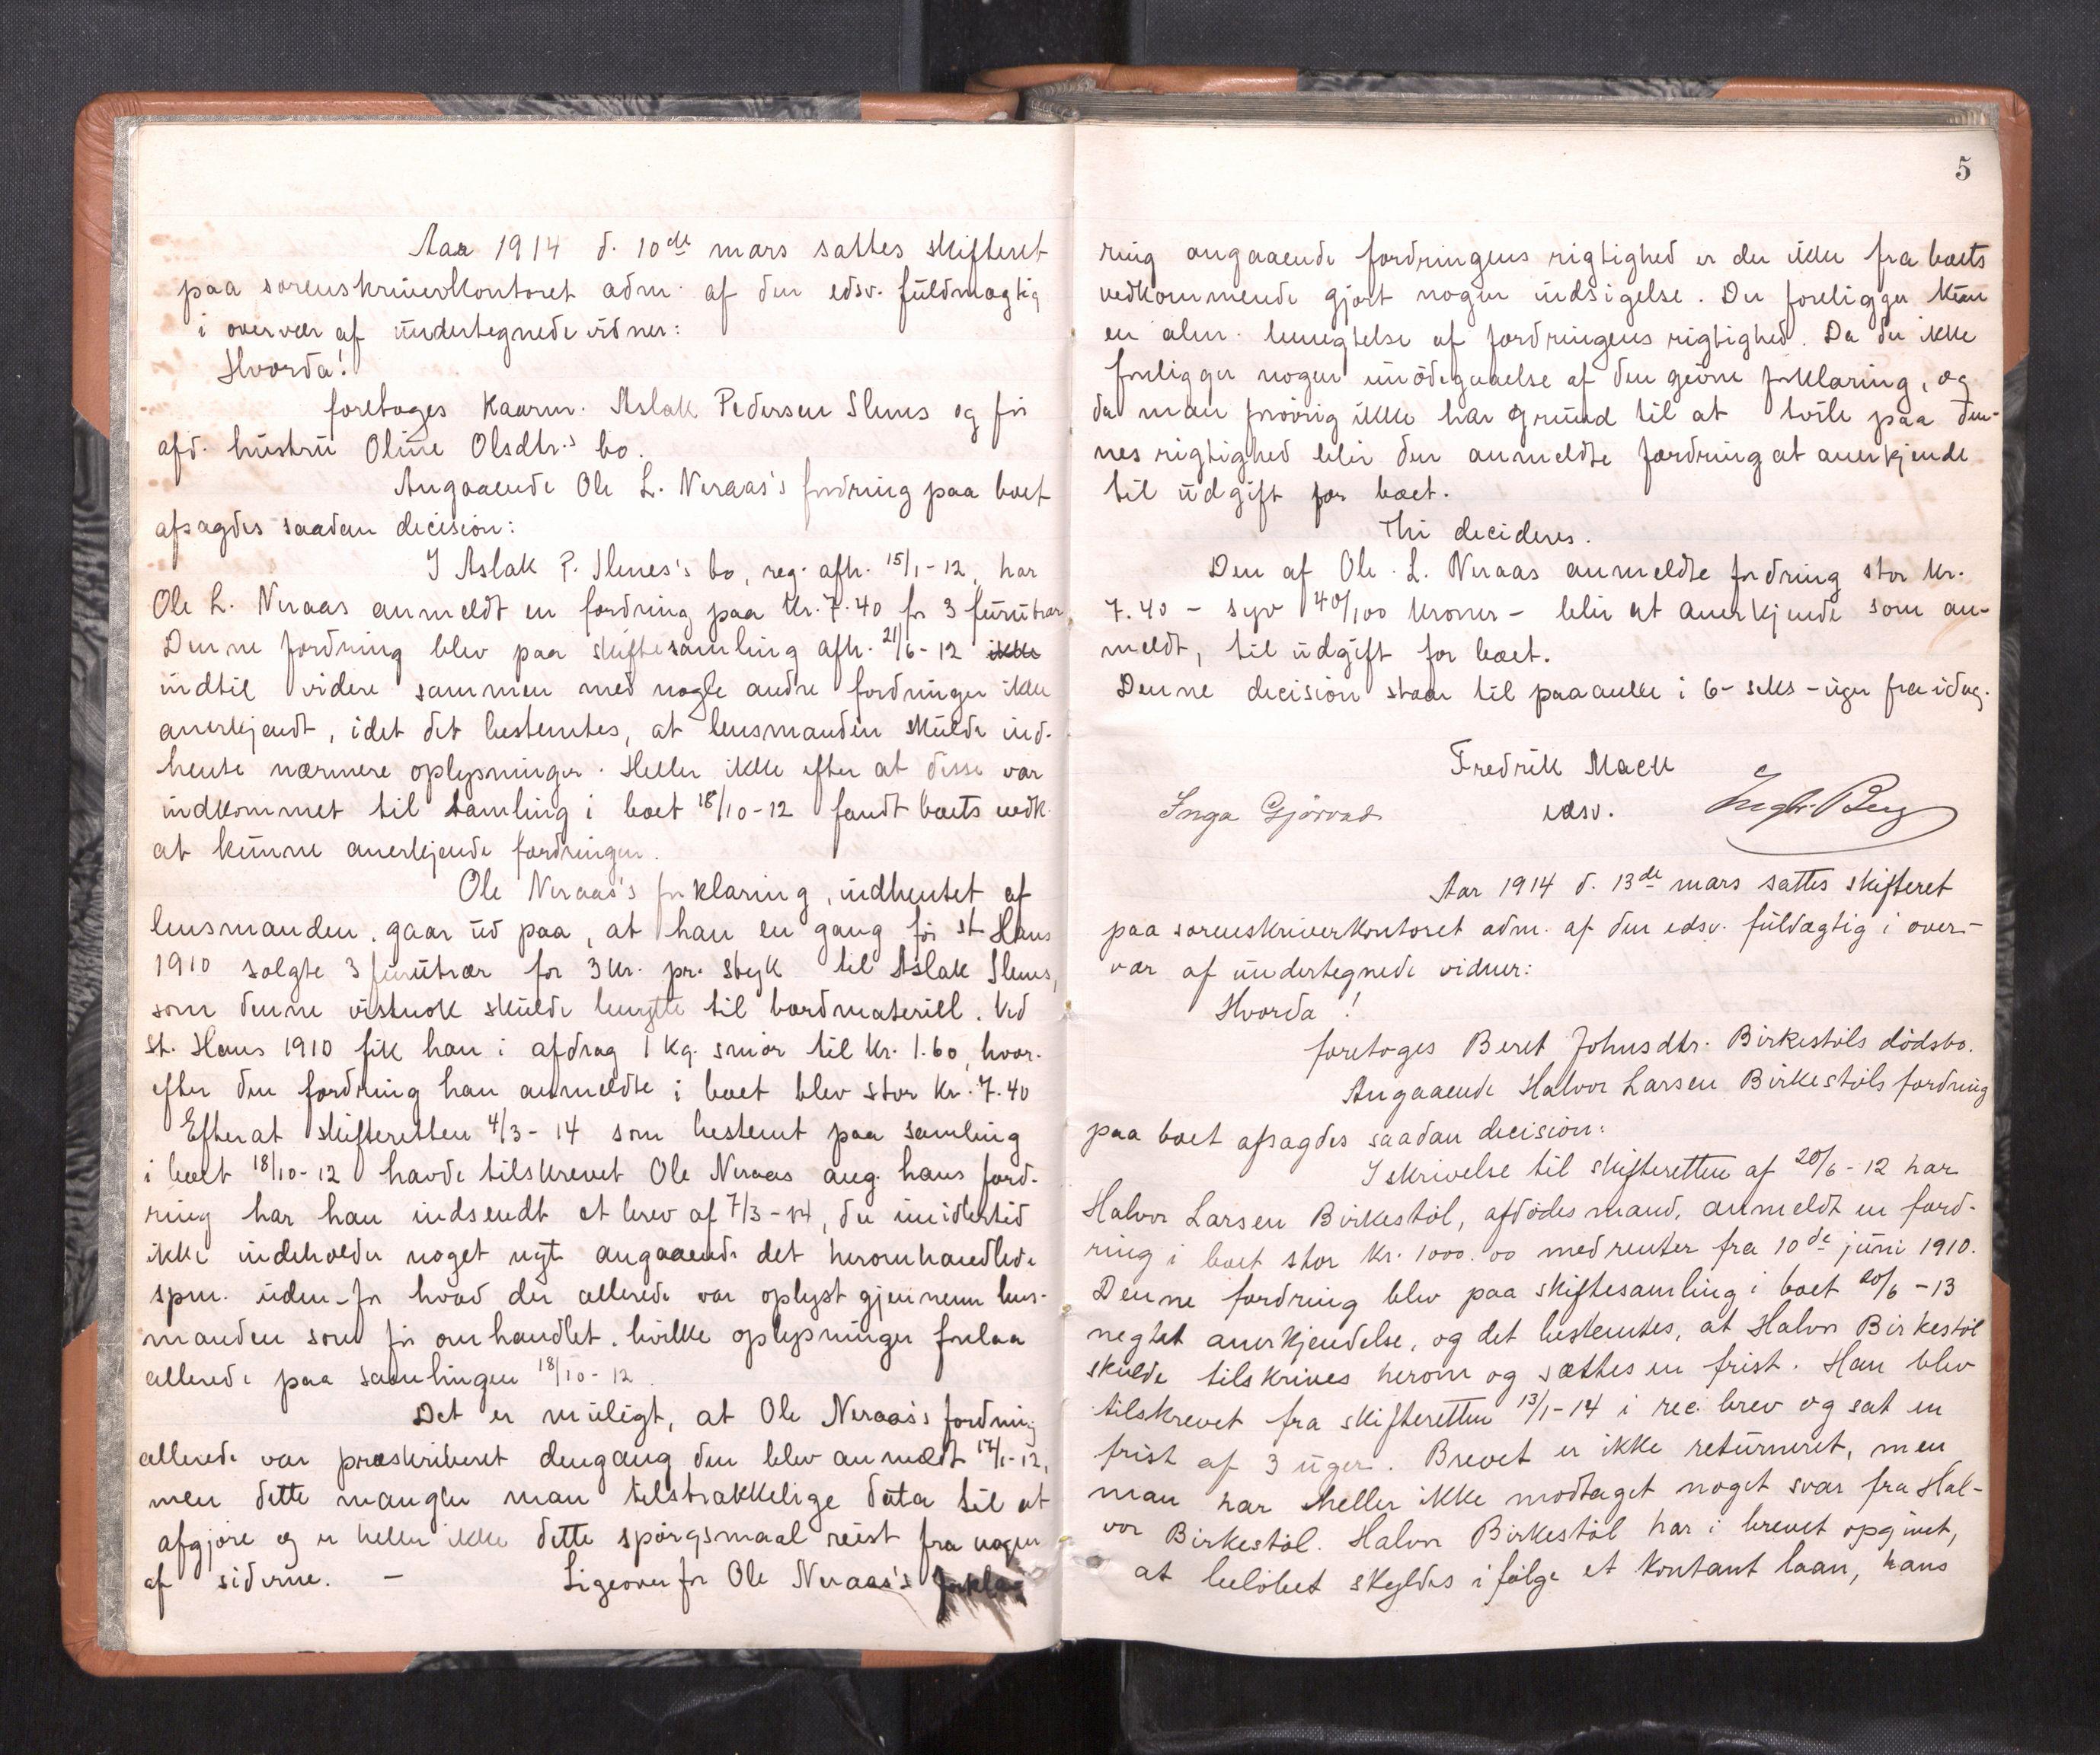 Aar 1914 d. 10de mars sattes skifteret
paa sorenskriverkontoret adm. af den edsv. fuldmægtig
i overvær af undertegnede vidner:
Hvorda!
foretoges Kaarm. Aslak Pedersen Slenes og før
afd. hustru Oline Olsdtr.s bo.
Angaaende Ole L. Neraas's fordring paa boet
afsagdes saadan decision:
I Aslak P. Slenes's bo, reg. afh. 15/1-12, har
Ole L. Neraas anmeldt en fordring paa Kr. 7.40 for 3 furutrær
Denne fordring blev paa skiftesamling afh. 21/6-12 ikke
indtil videre sammen med nogle andre fordringer ikke
anerkjendt, idet det bestemtes, at lensmanden skulde ind-
hente nærmere oplysninger. Heller ikke efter at disse var
indkommet til samling i boet 18/10-12 fandt boets vedk.
at kunne anerkjende fordringen.
Ole Neraas's forklaring, indhentet af
lensmanden, gaar ud paa, at han en gang før st Hans
1910 solgte 3 furutrær for 3 kr. pr. styk til Aslak Slenes,
som denne vistnok skulde benytte til bordmateriell. Ved
St. Hans 1910 fik han i afdrag 1 kg. smør til kr. 1.60, hvor-
efter den fordring han anmeldte i boet blev stor kr. 7.40
Efterat skifteretten 4/3-14 som bestemt paa samling
i boet 18/10-12 havde tilskrevet Ole Neraas ang. hans ford-
ring har han indsendt et brev af 7/3-14, der imidlertid
ikke indeholder noget nyt angaaende det heromhandlede
spm. uden-for hvad der allerede var oplyst gjennem lens-
manden som før omhandlet, hvilke oplysninger forelaa
allerede paa samlingen 18/10-12.
Det er muligt, at Ole Neraas's fordring
allerede var præskriberet dengang den blev anmeldt
men dette mangler man tilstrækkelige data til at
afgjøre og er heller ikke dette spørgsmaal reist fra nogen
af siderne. – Ligeoverfor Ole Neraas's forkla-
5
ring angaaende fordringens rigtighed er der ikke fra boets
vedkommende gjort nogen indsigelse. Der foreligger kun
en alm. benegtelse af fordringens rigtighed. Da der ikke
foreligger nogen imødegaaelse af den givne forklaring, og
da man forøvrig ikke har grund til at tvile paa den-
nes rigtighed blir den anmeldte fordring at anerkjende
til udgift for boet.
Thi decideres.
Den af Ole L. Neraas anmeldte fordring stor kr.
7.40 – syv 40/100 kroner – blir at anerkjende som an-
meldt, til udgift for boet.
Denne decision staar til paaanke i 6- seks -uger fra idag.
Fredrik Mack
Inga Gjørvad edsv. Ingbr. Berg
Aar 1914 d. 13de mars sattes skifteret
paa sorenskriverkontoret adm. af den edsv. fuldægtig i over-
vær af undertegnede vidner:
Hvorda!
foretoges Beret Johnsdtr. Birkestøls dødsbo.
Angaaende Halvor Larsen Birkestøls fordring
paa boet afsagdes saadan decision:
I skrivelse til skifteretten af 20/6-12 har
Halvor Larsen Birkestøl, afdødes mand, anmeldt en ford-
ring i boet stor kr. 1000.00 med renter fra 10de juni 1910.
Denne fordring blev paa skiftesamling i boet 20/6-13
negtet anerkjendelse, og det bestemtes, at Halvor Birkestøl
skulde tilskrives herom og sættes en frist. Han blev
tilskrevet fra skifteretten 13/1-14 i rec. brev og sat en
frist af 3 uger. Brevet er ikke returneret, men
man har heller ikke modtaget noget svar fra Hal-
vor Birkestøl. Halvor Birkestøl har i brevet opgivet,
at beløbet skyldes ifølge et kontant laan, hans